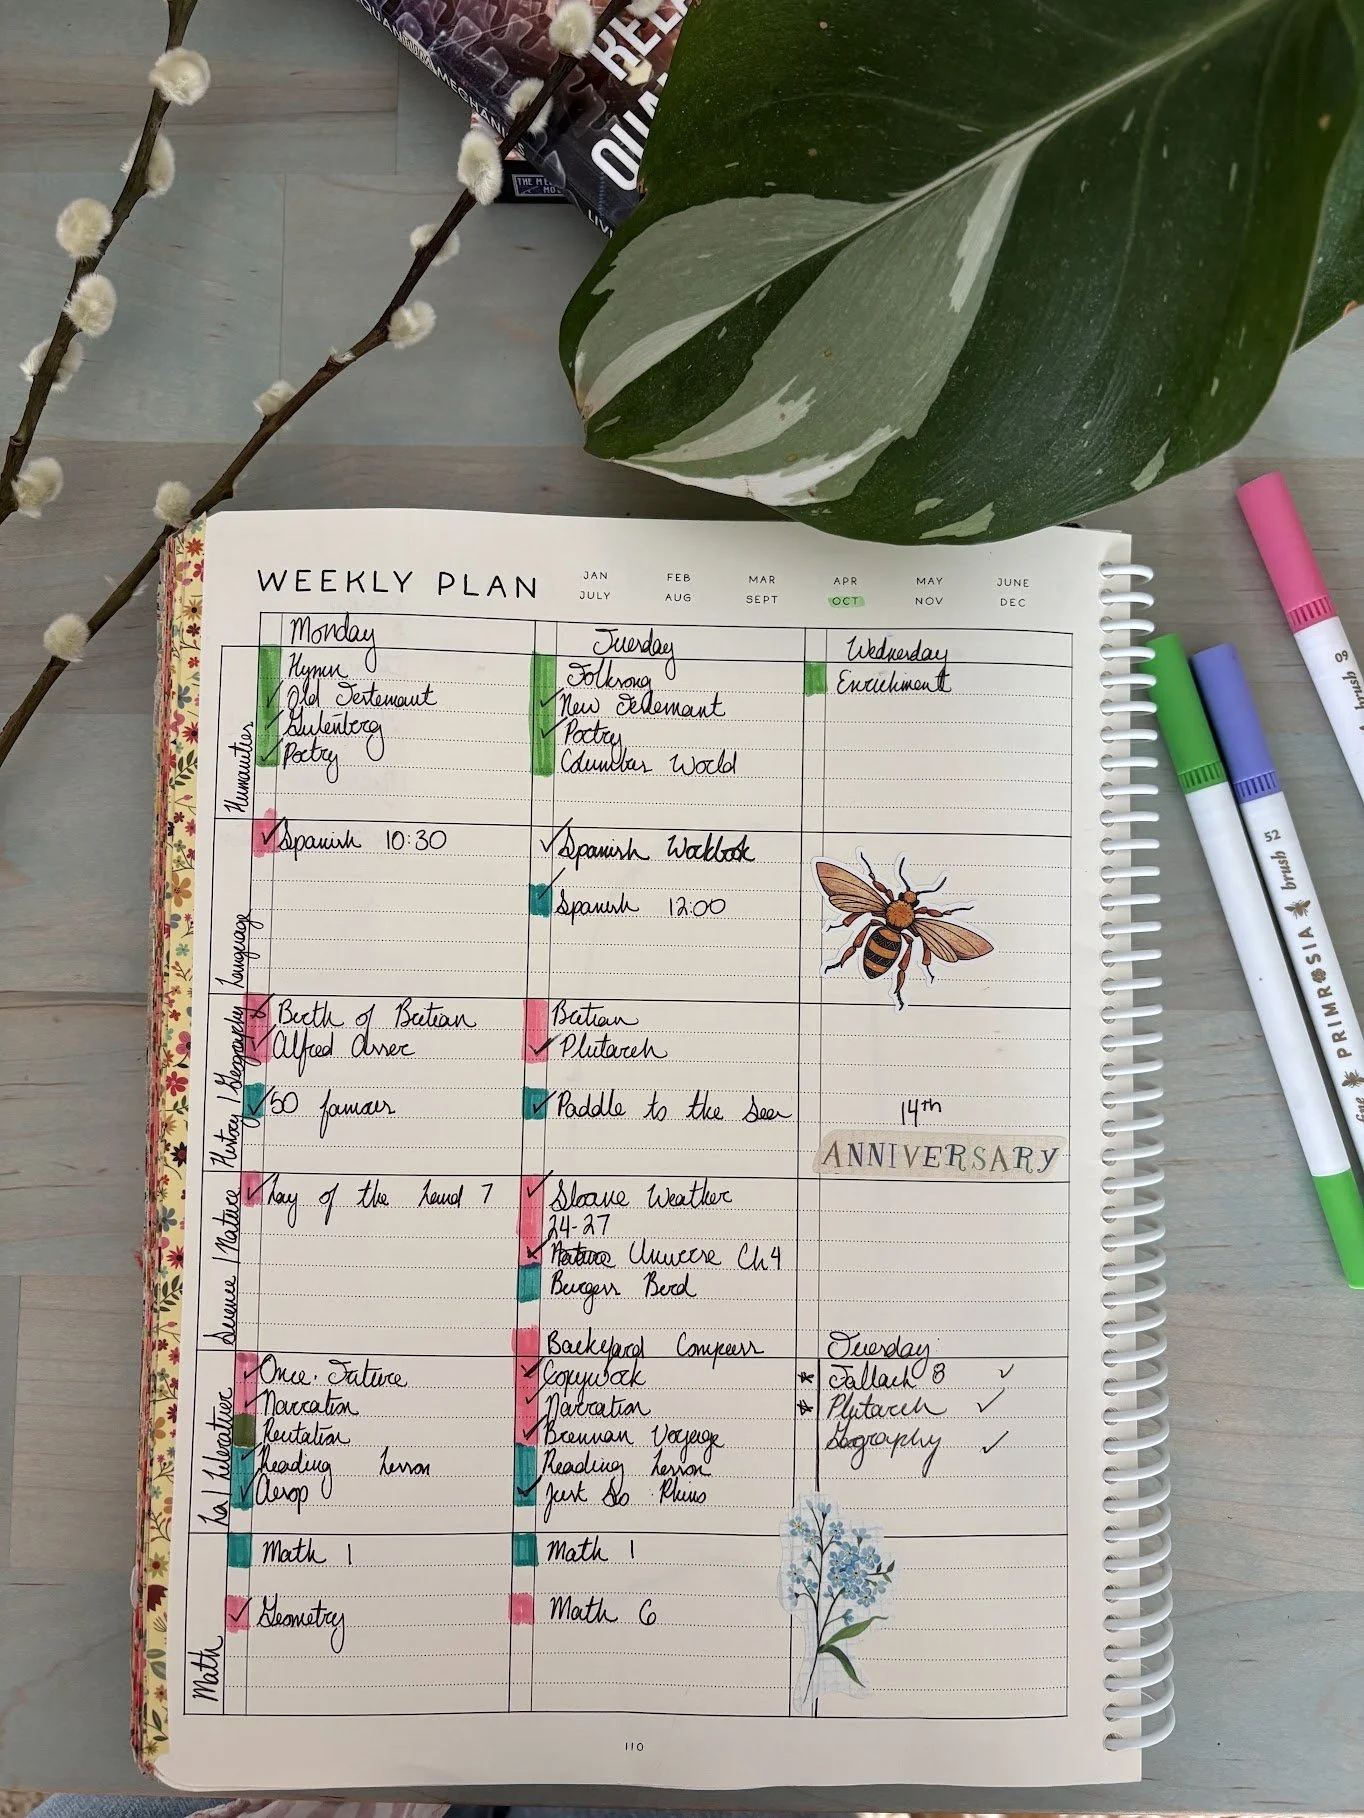 QUAN
MEGHAN
REL
QUA
LIV
WEEKLY PLAN
JAN FEB MAR APR MAY JUNE
JULY AUG SEPT OCT NOV DEC
Monday Tuesday Wednesday
Humanities
Hymn
Old Testemant
Gutenberg
Poetry
Folksong
New Testemant
Poetry
Columbus World
Enrichment
Language
Spanish 10:30
Spanish Workbook
Spanish 12:00
History | Geography
Birth of Britian
Alfred Asser
50 famous
Britian
Plutarch
Paddle to the Sea
14th
ANNIVERSARY
Science | Nature
Lay of the Land 7
Sloane Weather
24-27
Universe Ch 4
Burgess Bird
Backyard Compass
La | Literature
Once. Future
Narration
Recitation
Reading Lesson
Aesop
Copywork
Narration
Brennan Voyage
Reading Lesson
Just So Rhino
Tuesday:
Tallack 8
Plutarch
Geography
Math
Math 1
Geometry
Math 1
Math 6
110
09
brush
52
brush
PRIMROSIA